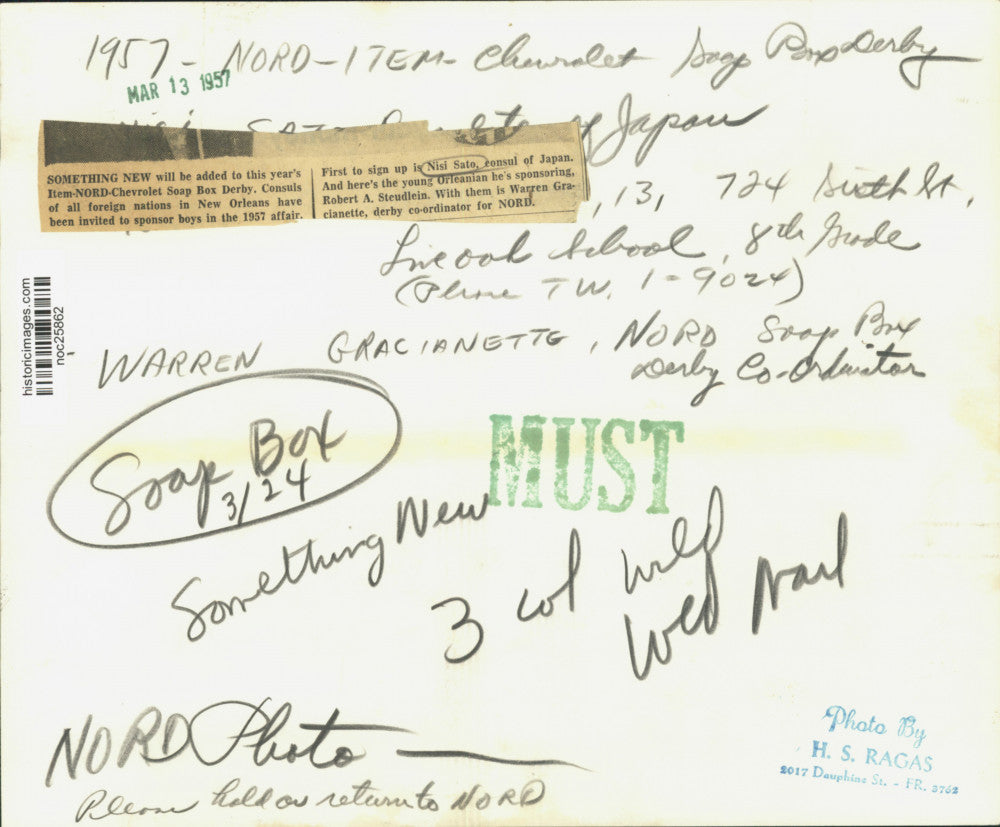 1957 - NORD-ITEM- Chevrolet Soap Box Derby
MAR 13 1957
of Japan
SOMETHING NEW will be added to this year's
Item-NORD-Chevrolet Soap Box Derby. Consuls
of all foreign nations in New Orleans have
been invited to sponsor boys in the 1957 affair.
First to sign up is Nisi Sato, consul of Japan.
And here's the young Orleanian he's sponsoring,
Robert A. Steudlein. With them is Warren Gra-
cianette, derby co-ordinator for NORD.
, 13, 724 Sixth St,
Live oak School, 8th Grade
(Phone TW. 1-9024)
historicimages.com
noc25862
- WARREN GRACIANETTE, NORD Soap Box
Derby Co-Ordinator
Soap Box
3/24
MUST
Something New
3 col
Wed
NORD Photo —
Please hold or return to NORD
Photo By
H. S. RAGAS
2017 Dauphine St. - FR. 3762